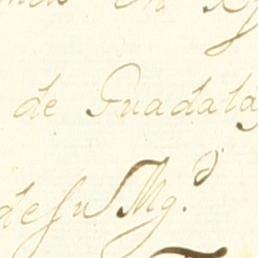 de Guadala
de su Mg.d